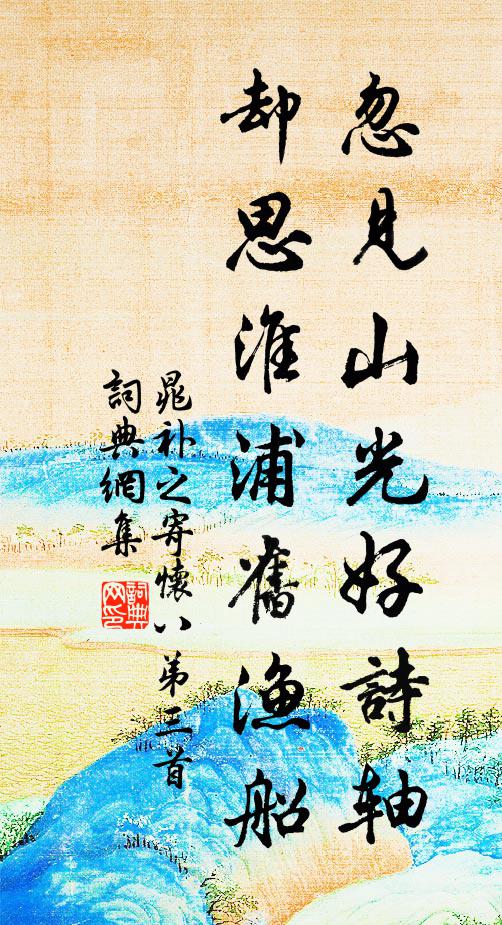 忽見山光好詩軸
却思淮浦舊漁船
晁补之寄懷八弟三首
詞典網集
詞典
网印